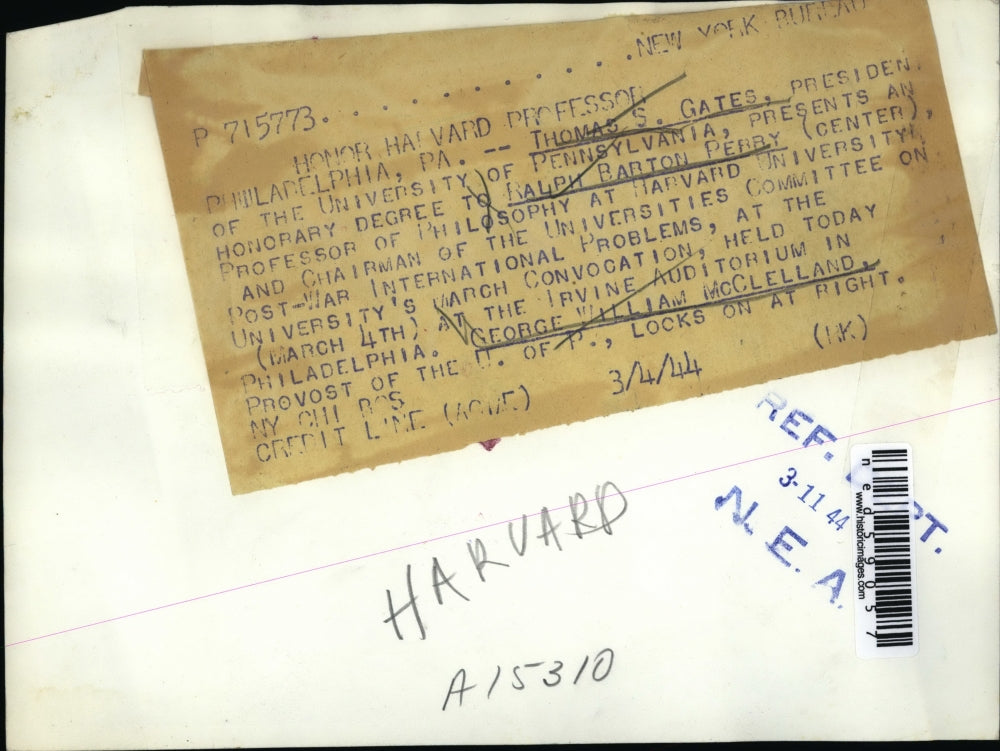 P 715773. . . . . . . . . . . . . .NEW YORK BUREAU
HONOR HARVARD PROFESSOR
PHILADELPHIA, PA. -- THOMAS S. GATES, PRESIDEN
OF THE UNIVERSITY OF PENNSYLVANIA, PRESENTS AN
HONORARY DEGREE TO RALPH BARTON PERRY (CENTER),
PROFESSOR OF PHILOSOPHY AT HARVARD UNIVERSITY,
AND CHAIRMAN OF THE UNIVERSITIES COMMITTEE ON
POST-WAR INTERNATIONAL PROBLEMS, AT THE
UNIVERSITY'S MARCH CONVOCATION, HELD TODAY
(MARCH 4TH) AT THE IRVINE AUDITORIUM IN
PHILADELPHIA. GEORGE WILLIAM McCLELLAND,
PROVOST OF THE U. OF P., LOOKS ON AT RIGHT.
NY CHI BOS (HK)
CREDIT LINE (ACME) 3/4/44
REF. DEPT.
3-11 44
N. E. A.
ned59057
www.historicimages.com
HARVARD
A15310